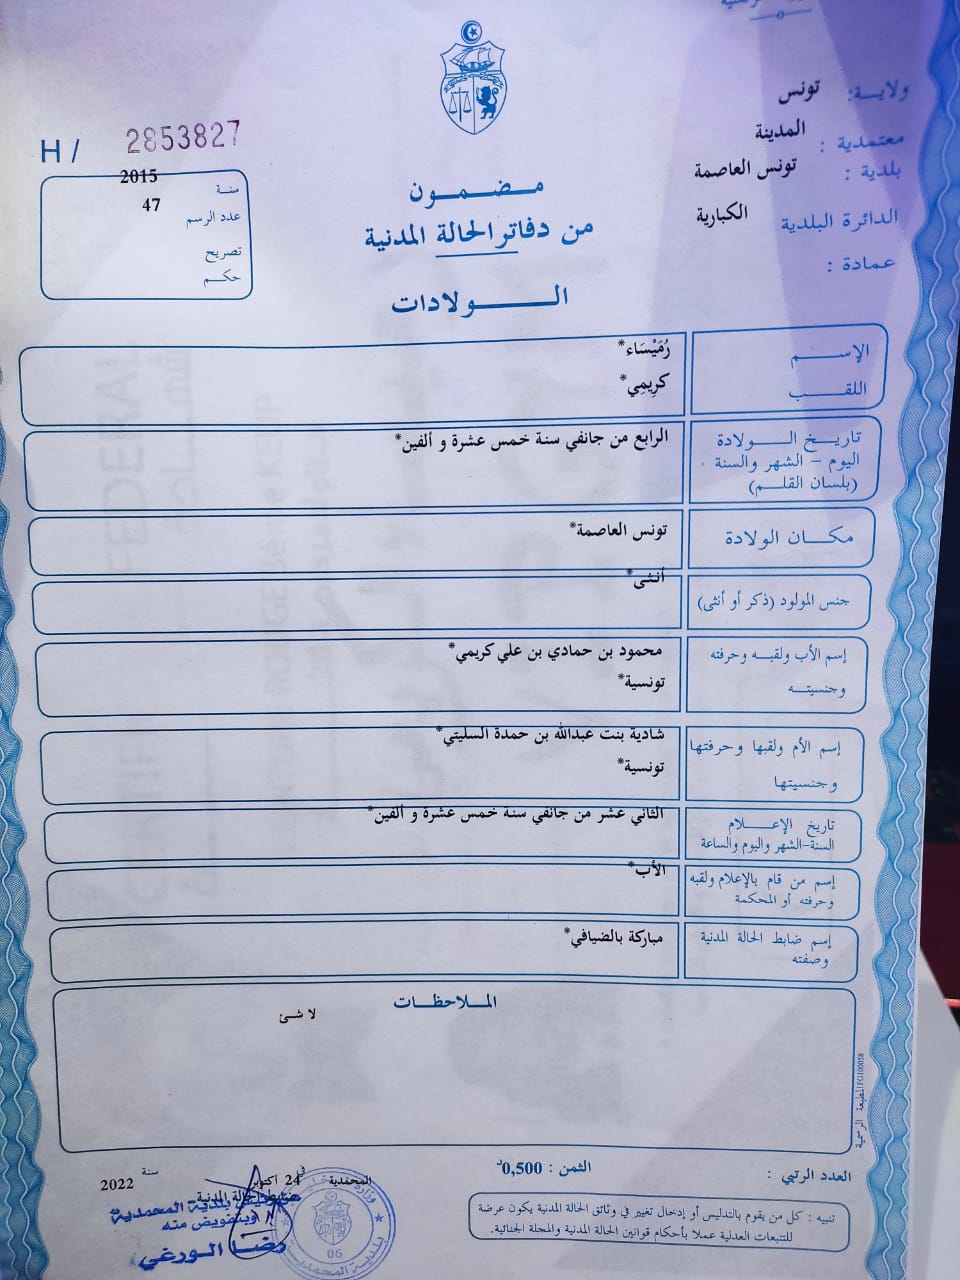 ولايـة: تونس
معتمدية : المدينة
بلدية : تونس العاصمة
الدائرة البلدية الكبارية
عمادة :
H / 2853827
سنة 2015
عدد الرسم 47
تصريح
حكـم
مـضـمـون
من دفاتر الحالة المدنية
الـــولادات
الإســـم رُمَيْسَاء*
اللقـــب كَرِيمِي*
تاريـخ الـــولادة الرابع من جانفي سنة خمس عشرة و ألفين*
اليوم - الشهر والسنة
(بلسان القلـم)
مكـان الولادة تونس العاصمة*
جنس المولود (ذكر أو أنثى) أنثى*
إسم الأب ولقبـه وحرفته محمود بن حمادي بن علي كريمي*
وجنسيتـه تونسية*
إسم الأم ولقبها وحرفتها شادية بنت عبدالله بن حمدة السليتي*
وجنسيتها تونسية*
تاريخ الإعـــلام الثاني عشر من جانفي سنة خمس عشرة و ألفين*
السنة-الشهر واليوم والساعة
إسم من قام بالإعلام ولقبه الأب*
وحرفته أو المحكمة
إسم ضابط الحالة المدنية مباركة بالضيافي*
وصفته
المـلاحظـات
لا شئ
المطبعة الرسمية FG100058
العدد الرتبي :
الثمن : 0,500د
تنبيه : كل من يقوم بالتدليس أو إدخال تغيير في وثائق الحالة المدنية يكون عرضة
للتتبعات العدلية عملا بأحكام قوانين الحالة المدنية والمجلة الجنائية.
المحمدية في 24 أكتوبر سنة 2022
ضابط الحالة المدنية
رئيس بلدية المحمدية
وبتفويض منه
رضا الورغي
06
بلدية المحمدية